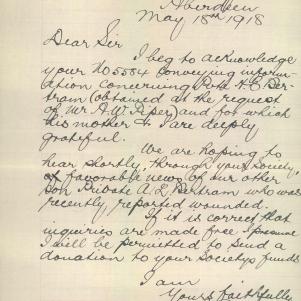 Aberdeen
May 18th 1918
Dear Sir
I beg to acknowledge
your No 5584 conveying inform-
ation concerning Pte H. C. Ber-
tram (obtained at the request
of Mr. A. W. Piper) and for which
his mother & I are deeply
grateful.
We are hoping to
hear shortly, through your society,
of favorable news of our other
son Private A. L. Bertram who was
recently reported wounded.
If it is correct that
inquiries are made free I presume
I will be permitted to send a
donation to your Society's funds
I am
Yours faithfully